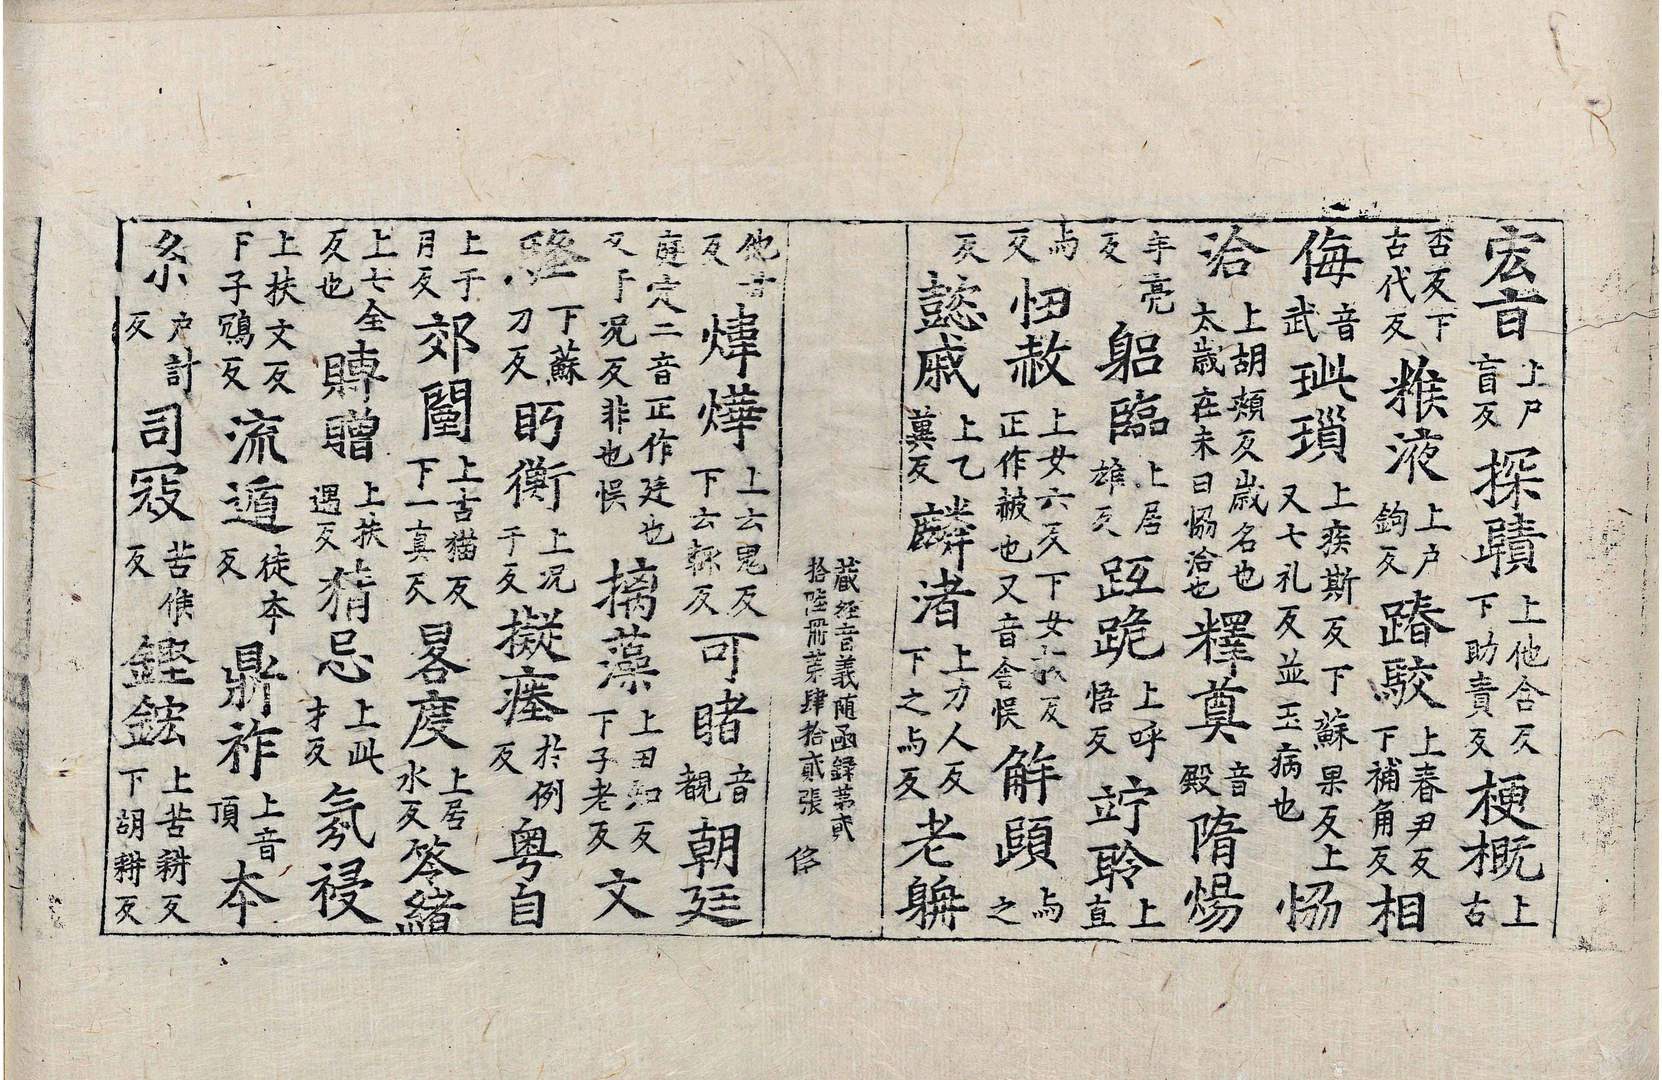 宏㫖上戶盲反探賾上他含反下助責反梗概上古
否反下古代反粻液上户鉤反踳駮上春尹反下補角反相
侮音武玼瑣上疾斯反下蘇果反上又七礼反並玉病也恊
洽上胡頰反歳名也太歳在未曰恊洽也釋奠音殿隋煬
羊亮反躳臨上居雄反跧跪上呼悟反竚聆上直
与反忸赦上女六反下女哉反正作赧也又音舍悮解頤与之
反懿戚上乙冀反麟渚上力人反下之与反老耼
藏經音義随函録第貳
拾陸冊苐肆拾貳張
他甘反煒爗上云鬼反下云輙反可睹音覩朝廷
庭定二音正作廷也又于况反非也悮摛藻上丑知反下子老反文
下蘇刀反眄衡上况于反擬瘞於例反粤自
上于月反郊闉上古猫反下一真反晷度上居水反答緒
上七全反也賻贈上扶遇反猜忌上此才反氛祲
上扶文反下子鴆反流遁徒夲反鼎祚上音頂夲
系户計反司冦苦候反鏗鋐上苦耕反下胡耕反